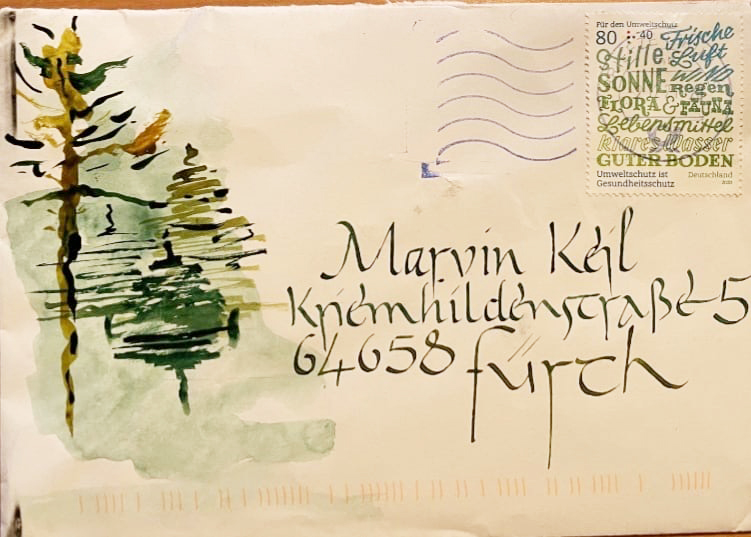 Für den Umweltschutz
80 + 40
Frische
Stille Luft
SONNE WIND
Regen
FLORA & FAUNA
Lebensmittel
klares Wasser
GUTER BODEN
Umweltschutz ist Deutschland
Gesundheitsschutz
Marvin Keil
Kriemhildenstraße 5
64658 Fürth